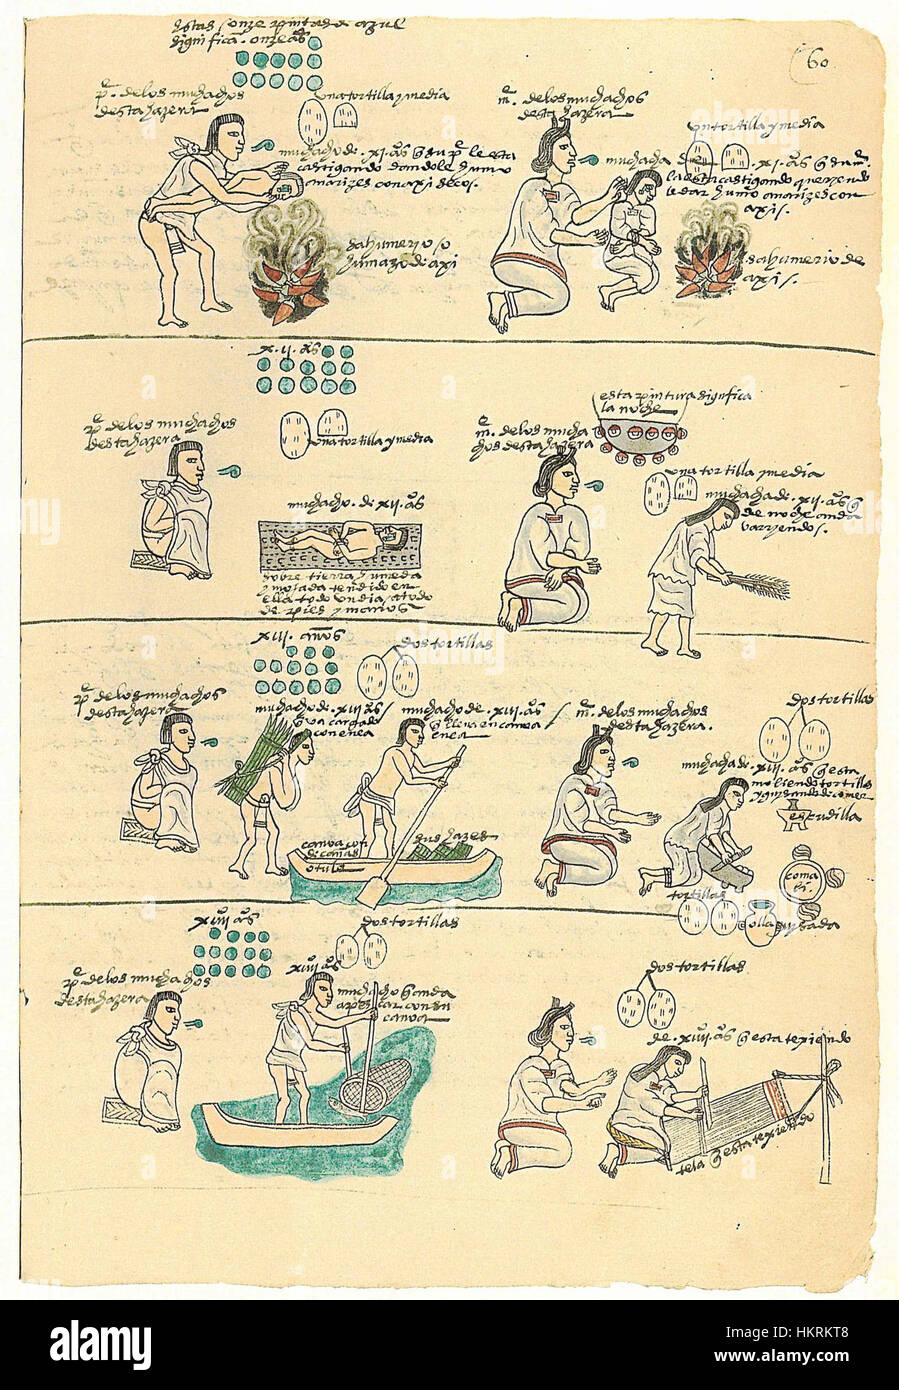 estas onze pintadas azul
significā. onze aºs
60
pº. de los muchachos
desta hazera
una tortilla y media
muchacho de .xi. aºs q̄ su pº le esta
castigando dandole humo
a narizes con axi secos.
sahumerio o
humazo de axi
mº. de los muchachos
desta hazera
una tortilla y media
muchacha de .xi. aºs q̄ su mº.
la esta castigando queryendo
le dar humo a narizes con
axis.
sahumerio de
axis.
x.ii. aºs
pº de los muchachos
desta hazera
una tortilla y media
muchacho. de .xii. aºs
sobre tierra humeda
y mojada tendido en
ella todo un dia / atado
de pies y manos
esta pintura significa
la noche
mº. de los mucha
chos desta hazera
una tortilla y media
muchacha de .xii. aºs q̄
de noche anda
varryendo.
xiii. años
dos tortillas
pº de los muchachos
desta hazera
muchacho de .xiii aºs
q̄ va cargado
con enea
muchacho de .xiii. aºs
q̄ lleva en canoa
enea
canoa con
de cañas
o tule
sus hazes
mº. de los muchachos
desta hazera.
dos tortillas
muchacha de .xiii. aºs q̄ esta
moliendo tortillas
y guisando de comer
escudilla
comali.
tortillas
olla
guisada
xiiii aºs
dos tortillas
pº de los muchachos
desta hazera
xiiii aºs
muchacho q̄ anda
a pescar con su
canoa
dos tortillas
de .xiiii. aºs q̄ esta texiendo
tela q̄ esta texiendo
alamy
a
alamy
Image ID: HKRKT8
www.alamy.com